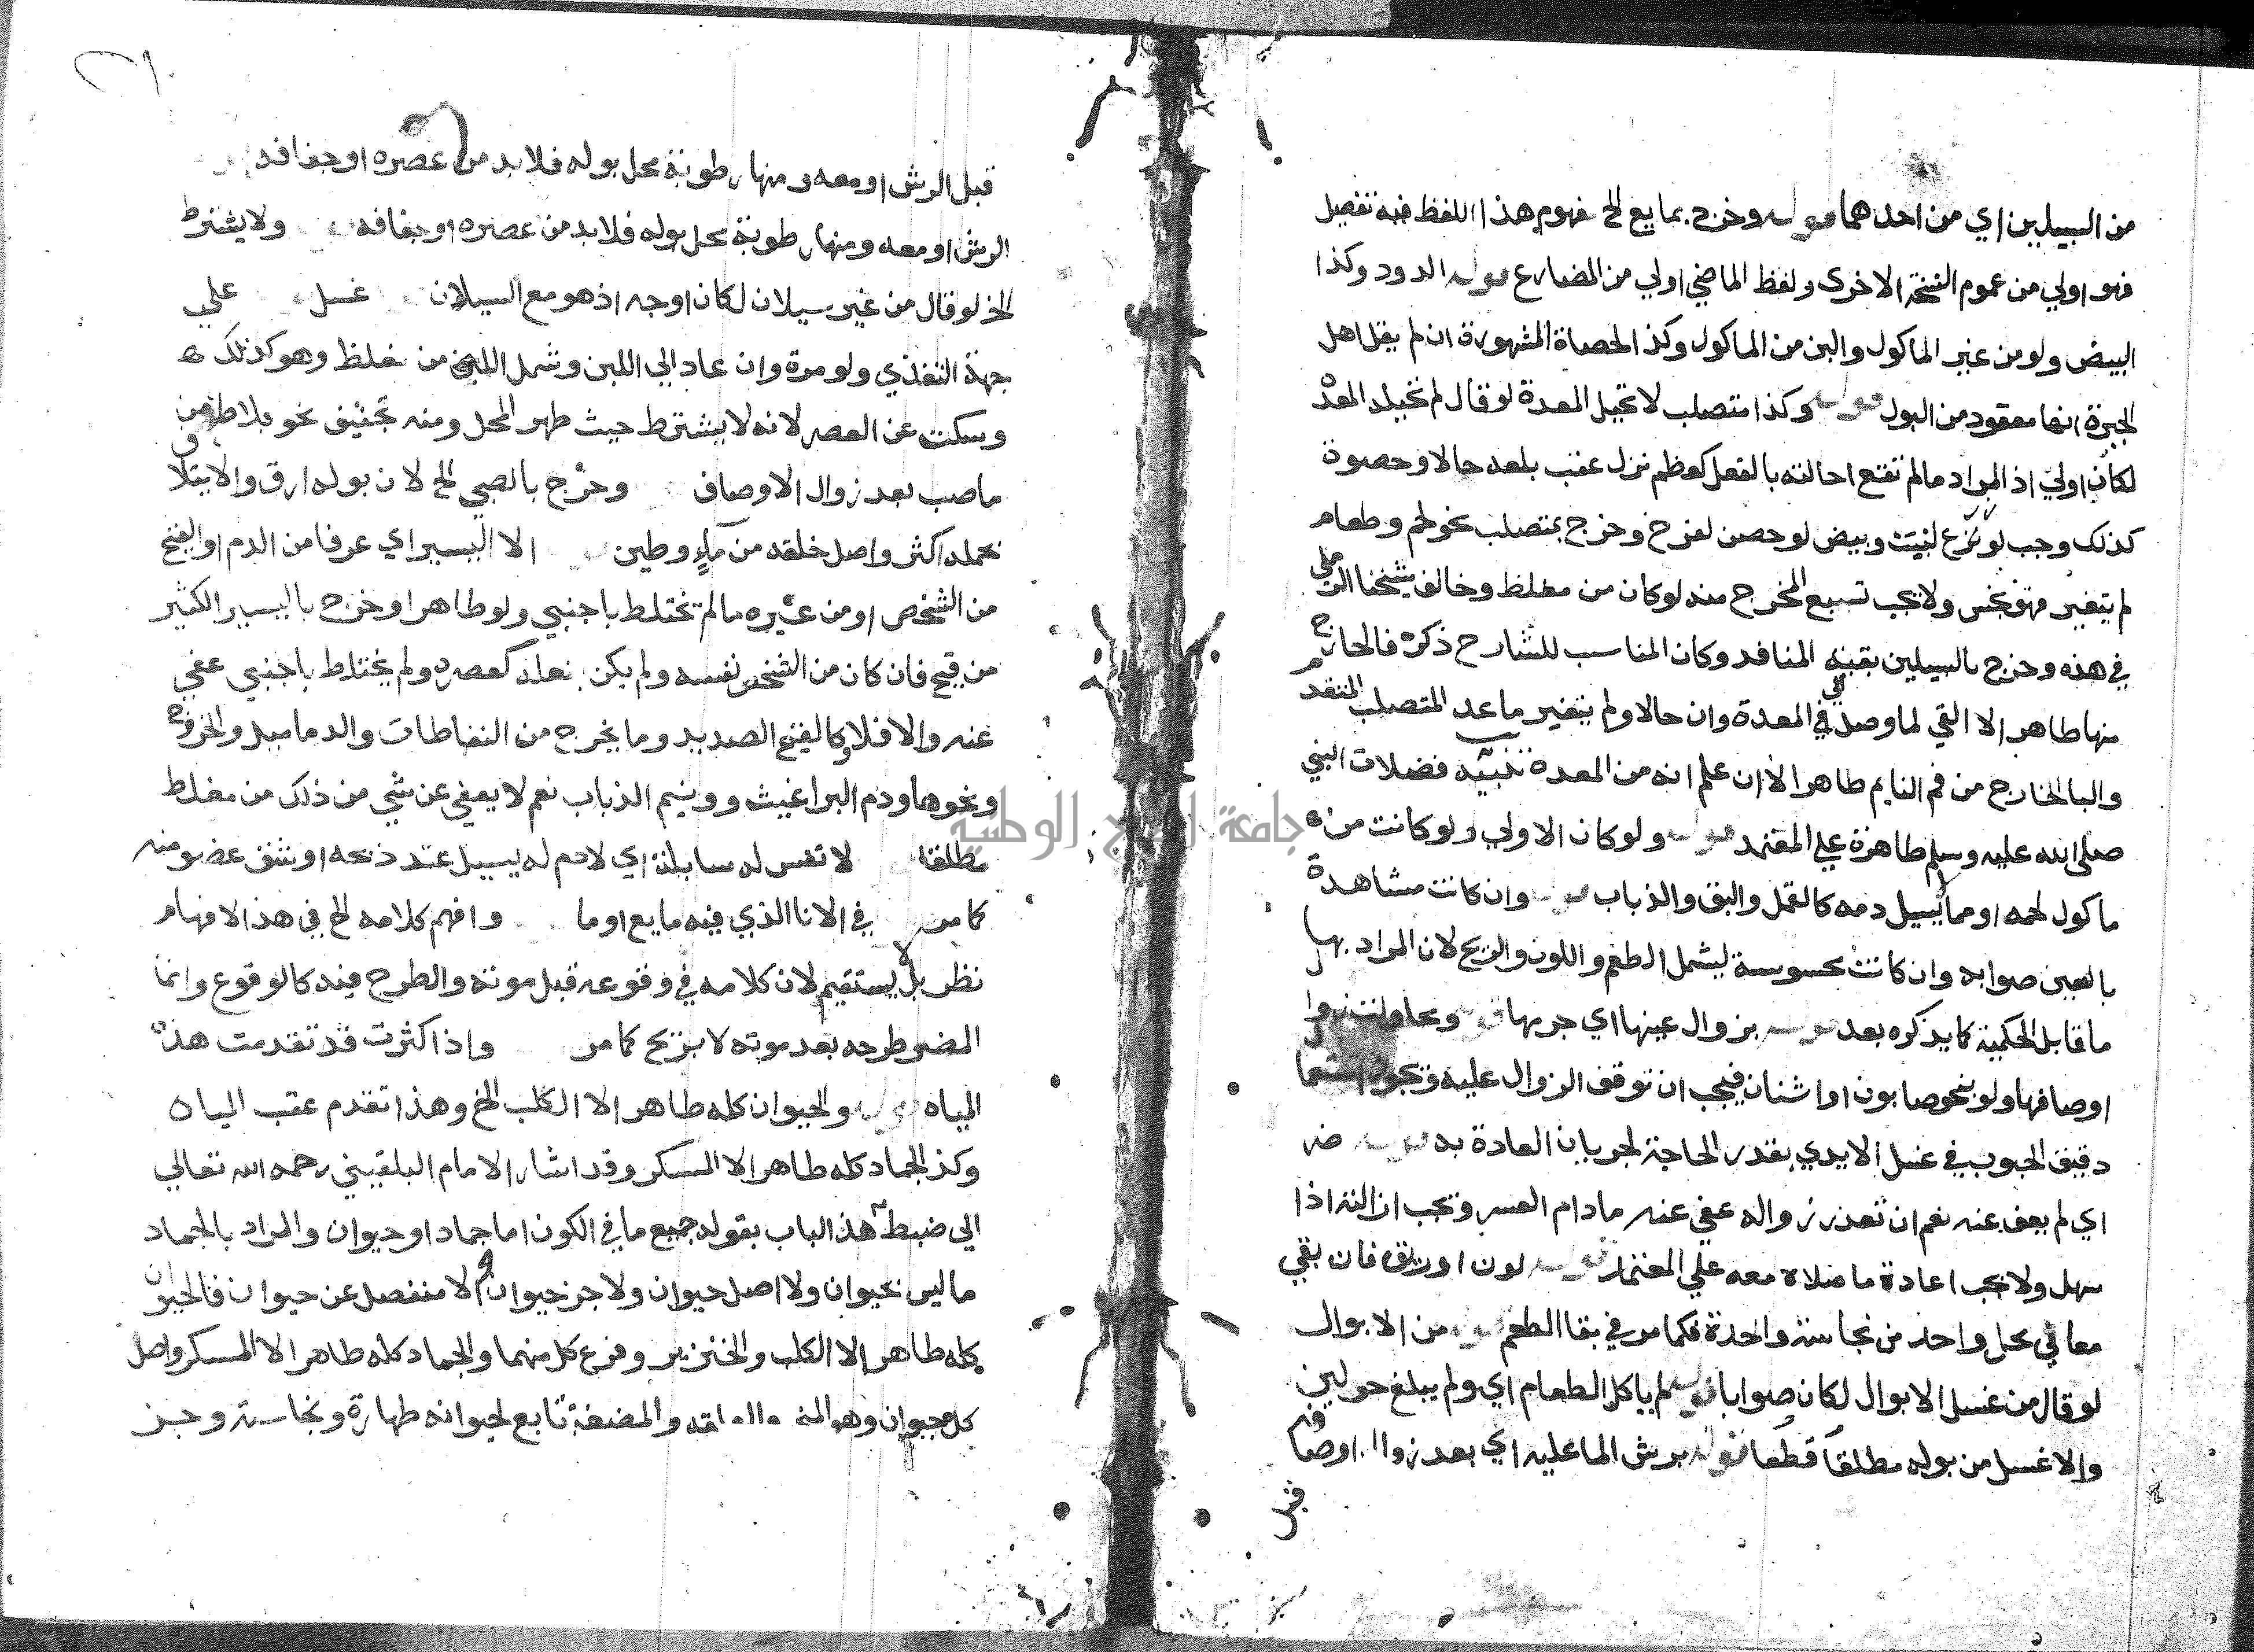 من السبيلين اي من احدهما قوله وخرج بمايع الخ مفهوم هذا اللفظ فيه تفصيل
فهو اولي من عموم النسخة الاخرى ولفظ الماضي اولي من المضارع قوله الدود وكذا
البيض ولو من غير الماكول والبن من الماكول وكذا الحصاة المشهورة ان لم يقل اهل
الخبرة انها معقود من البول قوله وكذا متصلب لا تحيل المعدة لو قال لم تحيله المعدة
لكان اولي اذ المراد مالم تقع احالته بالفعل كعظم نزل عقب بلعه حالا وحصوة
كذلك وجب لو زرع لنبت وبيض لو حصن لفرخ وخرج بمتصلب نحو لحم وطعام
لم يتغير فهو نجس ولا يجب تسبيع المخرج منه لو كان من مغلظ وخالف شيخنا الرملي
في هذه وخرج بالسبيلين بقيه المنافد وكان المناسب للشارح ذكره فالخارج
منها طاهر الا القي لما وصل الي المعدة وان حالا ولم يتغير ما عد المتصلب المتقدم
والبا الخارج من فم النايم طاهر الا ان علم انه من المعدة تنبيه فضلات النبي
صلى الله عليه وسلم طاهرة علي المعتمد قوله ولو كان الاولي ولو كانت من
ماكول لحمه او مما لا يسيل دمه كالقمل والبق والذباب قوله وان كانت مشاهدة
بالعين صوابه وان كانت محسوسة ليشمل الطعم واللون والريح لان المراد بها
ما قابل الحكمية كما يذكره بعد قوله بزوال عينها اي جرمها قوله ومحاولت زوال
اوصافها ولو بنحو صابون او اشنان فيجب ان توقف الزوال عليه ويجوز استعما
دقيق الحبوب في غسل الايدي بقدر الحاجة لجريان العادة به قوله ضر
اي لم يعف عنه نعم ان تعذر زواله عفي عنه مادام العسر وتجب ازالته اذا
سهل ولا يجب اعادة ما صلاه معه علي المعتمد قوله لون او ريق فان بقي
معا في محل واحد من نجاسة واحدة فكما مر في بقا الطعم قوله من الابوال
لو قال من غسل الابوال لكان صوابا قوله لم ياكل الطعام اي ولم يبلغ حولين
والا غسل من بوله مطلقا قطعا قوله برش الما عليه اي بعد زوال اوصافه
قبل
قبل الرش او معه ومنها رطوبة محل بوله فلا بد من عصره او جفافه
الرش او معه ومنها رطوبة محل بوله فلا بد من عصره او جفافه ولا يشترط
الخ لو قال من غير سيلان لكان اوجه اذ هو مع السيلان غسل علي
جهة التغذي ولو مرة وان عاد الي اللبن وشمل اللبن من مغلظ وهو كذلك
وسكت عن العصر لانه لا يشترط حيث طهر المحل ومنه تجفيف نحو بلاط من
ما صب بعد زوال الاوصاف وخرج بالصبي الخ لان بوله ارق والابتلا
بحمله اكثر واصل خلقه من ماء وطين الا اليسير اي عرفا من الدم او القيح
من الشخص او من غيره مالم تختلط باجنبي ولو طاهرا وخرج باليسير الكثير
من قيح فان كان من الشخص نفسه ولم يكن بفعله كعصره ولم يختلط باجنبي عفي
عنه والا فلا وكالقيح الصديد وما يخرج من النفاطات والدماميل والخروج
ونحوها ودم البراغيث وونيم الذباب نعم لا يعفي عن شي من ذلك من مغلظ
مطلقا لا نفس له سايلة اي لا دم له يسيل عند ذبحه او شق عضو منه
كما مر في الانا الذي فيه مايع او ما وافهم كلامه الخ في هذا الافهام
نظر بل لا يستقيم لان كلامه في وقوعه قبل موته والطرح فيه كالوقوع وانما
المضر طرحه بعد موته لا بريح كما مر واذا كثرت قد تقدمت هذه
المياه قوله والحيوان كله طاهر الا الكلب الخ وهذا تقدم عقب المياه
وكذا الجماد كله طاهر الا المسكر وقد اشار الامام البلقيني رحمه الله تعالي
الي ضبط هذا الباب بقوله جميع ما في الكون اما جماد او حيوان والمراد بالجماد
ما ليس بحيوان ولا اصل حيوان ولا جز حيوان ولا منفصل عن حيوان فالحيوان
كله طاهر الا الكلب والخنزير وفرع كل منهما والجماد كله طاهر الا المسكر واصل
كل حيوان وهو المني والعلقه والمضغة تابع لحيوانه طهارة ونجاسة وجز
جامعة النجاح الوطنية